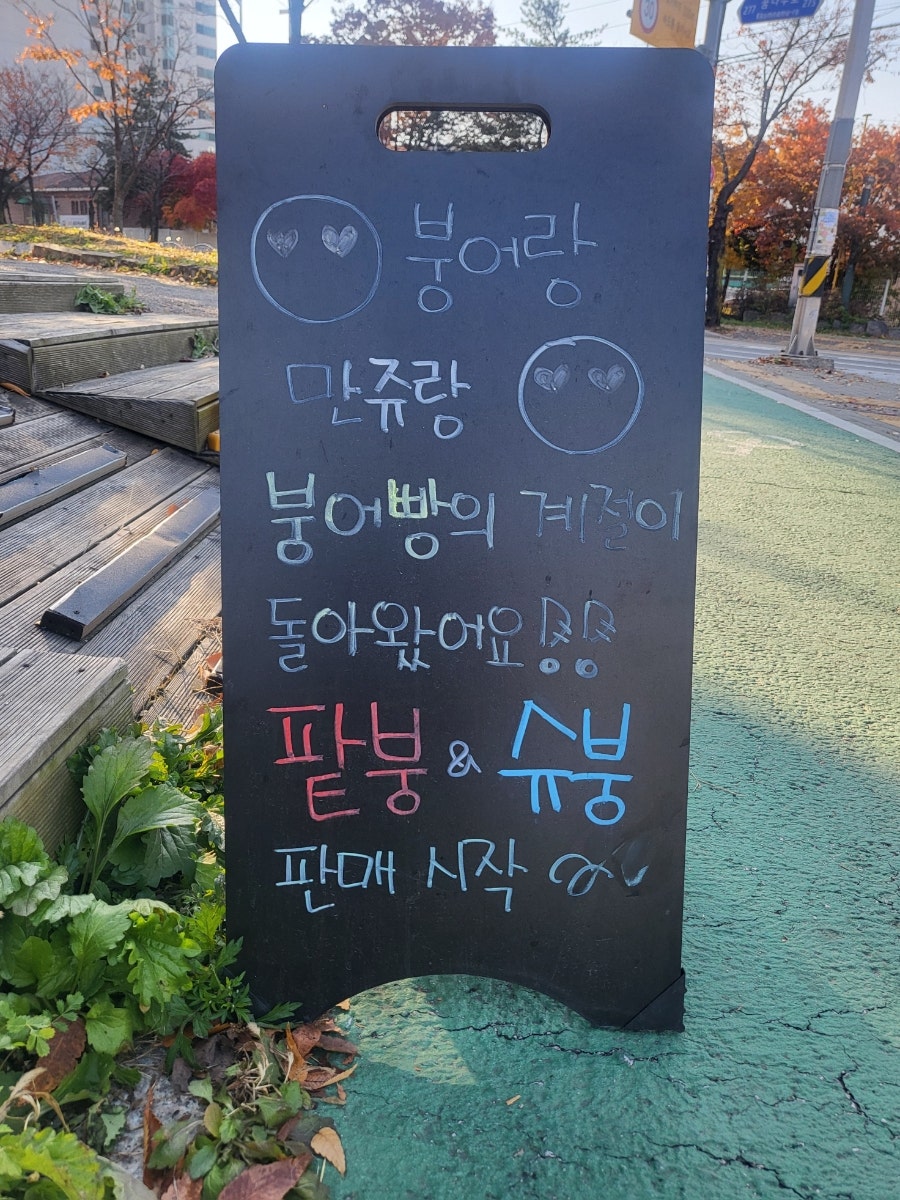 붕어랑
만쥬랑
붕어빵의 계절이
돌아왔어요!!
팥붕 & 슈붕
판매 시작~
277
277